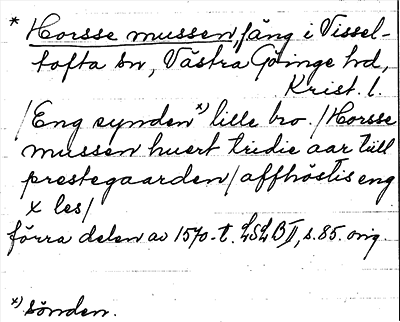 * Horsse mussen, äng i Vissel-
tofta sn, Västra Göinge hd,
Krist. l.
/Eng synden x) lille bro. / Horsse
mussen huert tridie aar till
prestegaarden / affhöstis eng
x les /
förra delen av 1570-t. LSLB II, s. 85. orig.
x) sönden.